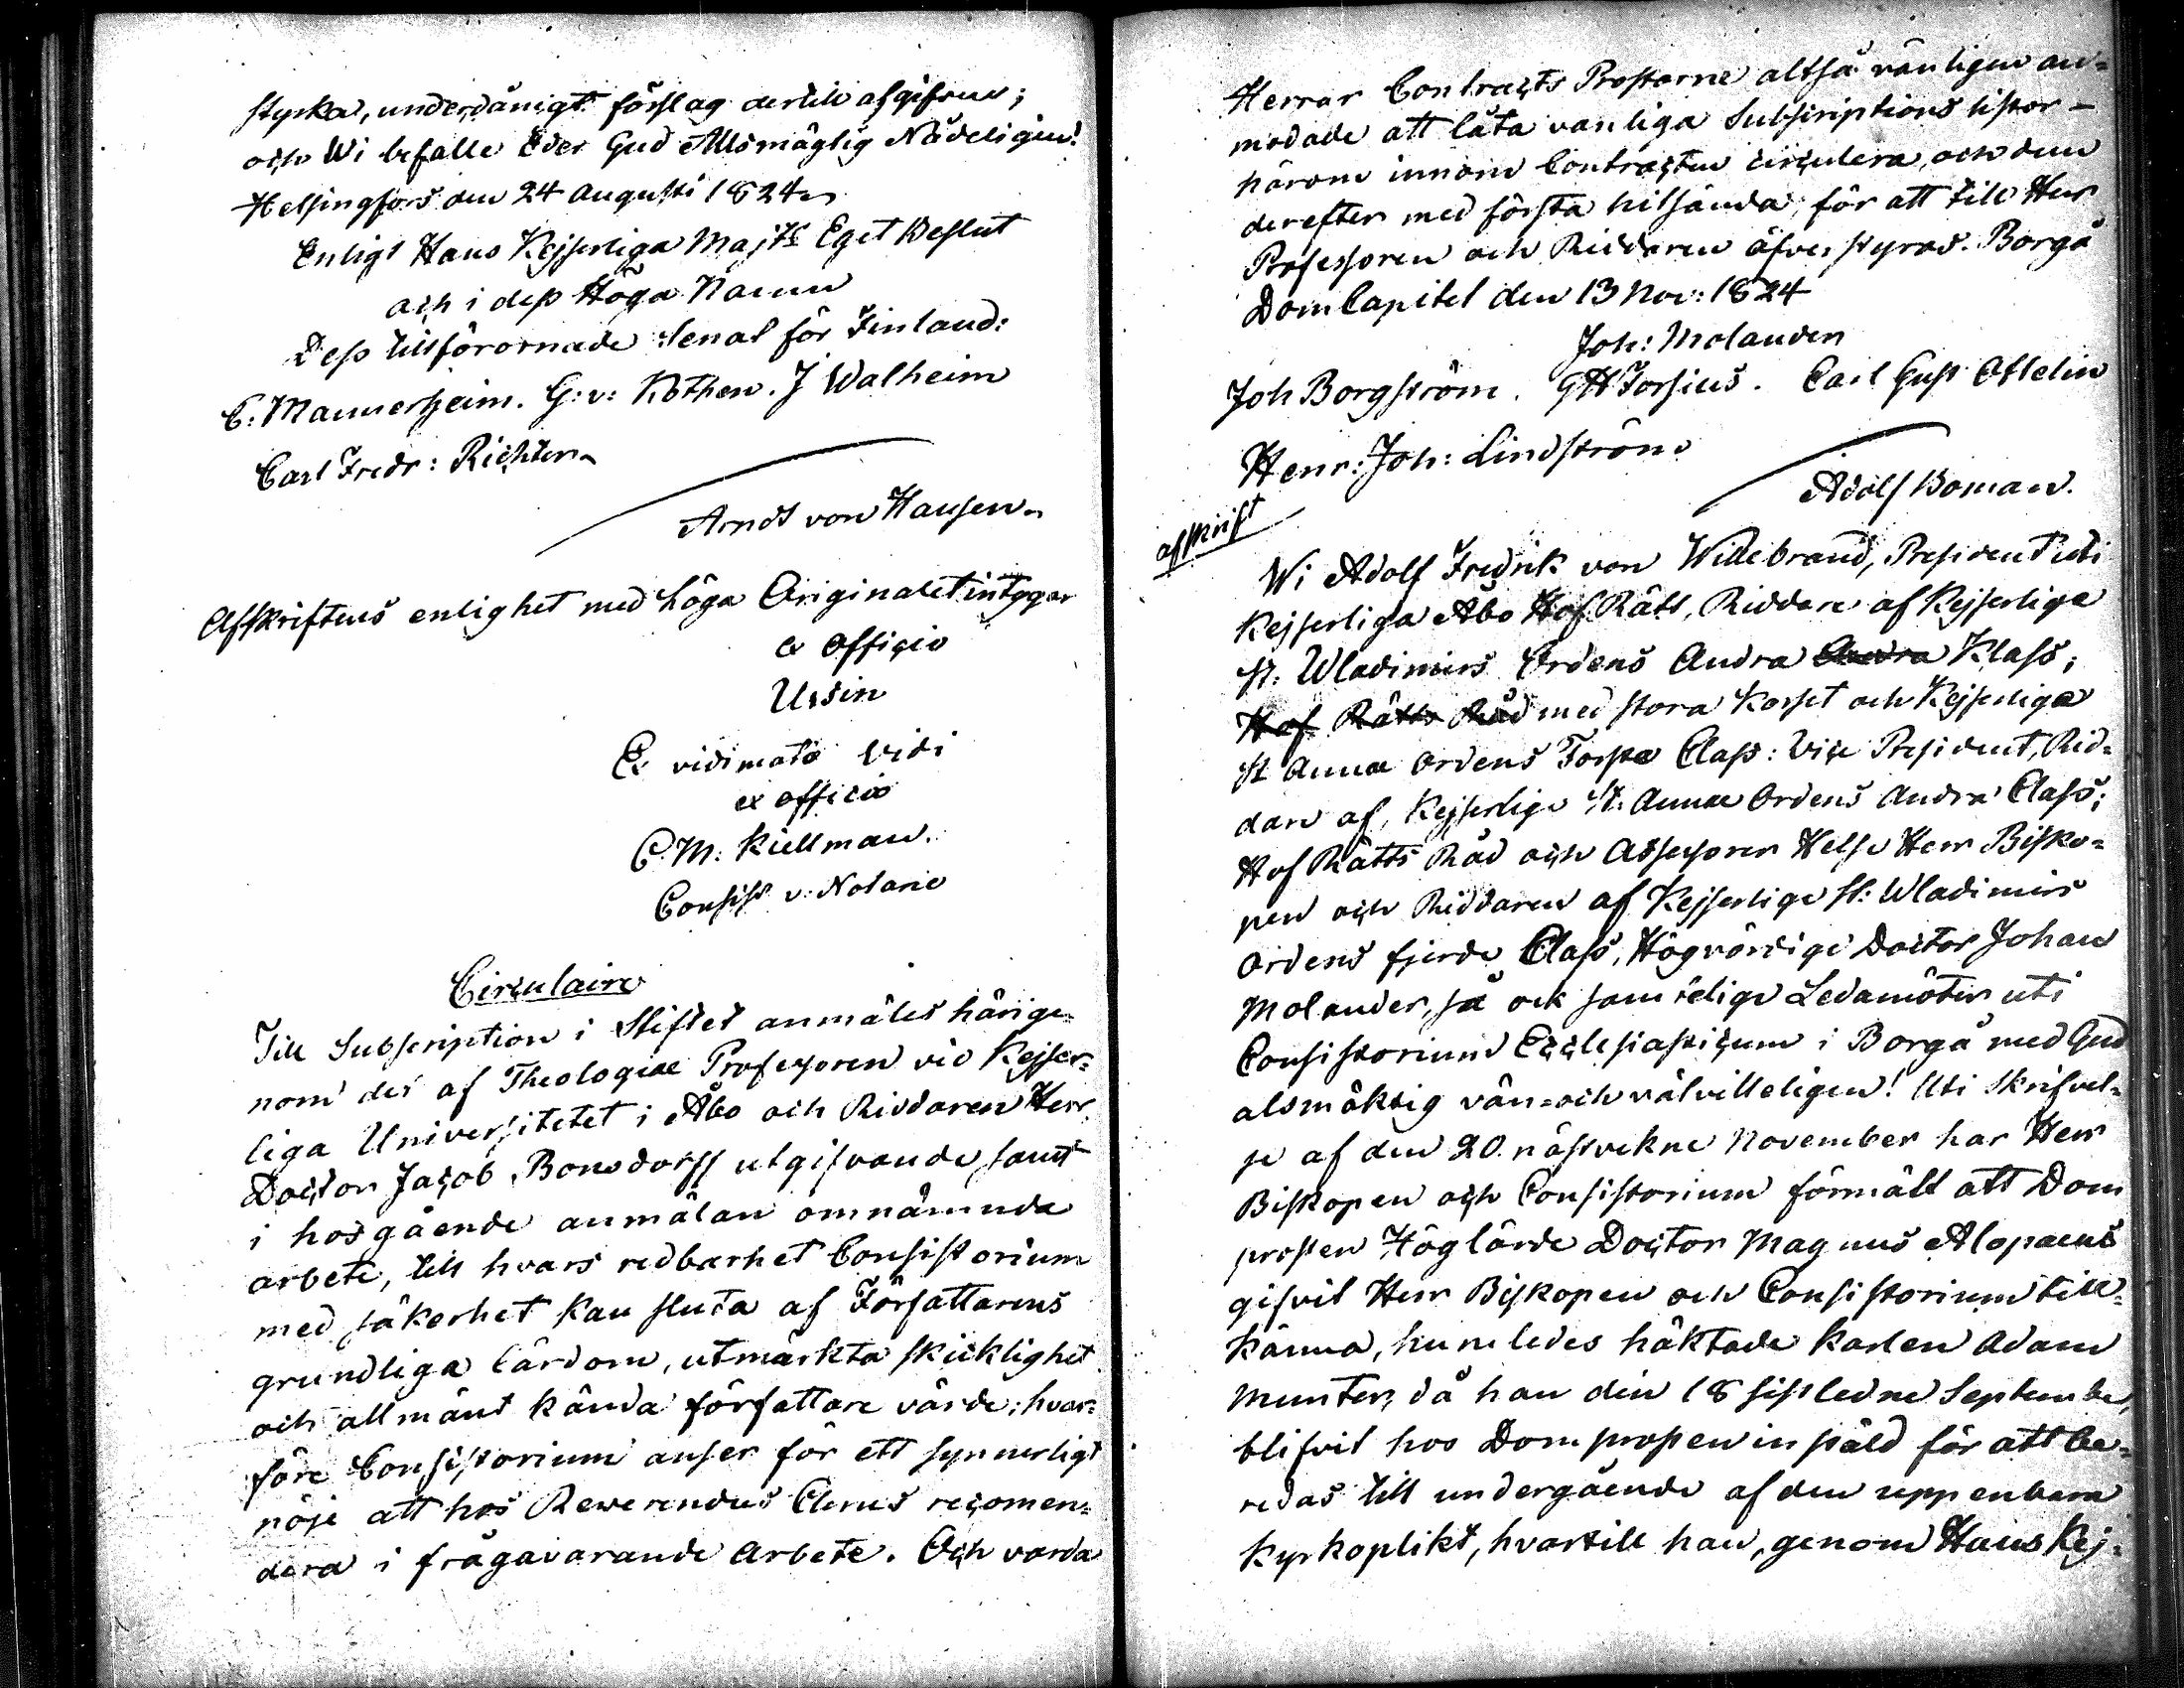 styrka, underdånigt förslag dertill afgifvew;
och Wi befalle Eder Gud Allsmägtig Nådeligen!
Helsingfors den 24 Augusti 1824
Enligt Hans Kejserliga Majts Eget Beslut
och i dess Höga Namn
Dess tillförornade Senat för Finland:
C. Mannerheim. G: v: Kothen. J Walheim
Carl Fredr: Richter
Arndt von Hausen
Afskriftens enlighet med höga Originalet intygar
ex officio
Ursin
Ex vidimata vidi
ex officio
C. M. Kiellman.
Consist v. Notarie
Circulaire
Till Subscription i Stiftet anmäles härige-
nom det af Theologiae Professoren vid Kejser-
liga Universitetet i Åbo och Riddaren Herr
Doctor Jacob Bonsdorff utgifvande samt
i hosgående anmälan omnämnda
arbete, till hvars redbarhet Consistorium
med säkerhet kan sluta af Författarens
grundliga lärdom, utmärkta skicklighet
och allmänt kända författare värde; hvar-
före Consistorium anser för ett synnerligt
nöje att hos Rewerendus Clerus recomen-
dera i frågavarande Arbete. Och varda
Herrar Contracts Prostarne altså vänligen an-
modade att låta vanliga Subscriptions listor -
härom innom Contracten circulera, och dem
derefter med första hitsända, för att till Herr
Professoren och Riddaren öfverstyras. Borgå
Dom Capitel den 13 Nov: 1824
Joh: Molander
Joh Borgström. G H Forsius. Carl Gust Ottelin
Henr: Joh: Lindström
Adolf Boman.
afskrift
Wi Adolf Fredrik von Willebrand, President uti
Kejserliga Åbo Hof Rätt, Riddare af Kejserliga
St. Wladimirs Ordens Andra Andra Klass;
Hof Rätts Råd med stora Korset och Kejserliga
St Annæ Ordens Första Class: Vice President, Rid-
dare af, Kejserlige St. Annæ Ordens Andra Class;
Hof Rätts Råd och Assessorer Helse Herr Bisko-
pen och Riddaren af Kejserlige St: Wladimirs
Ordens fjerde Class, Högvördige Doctor Johan
Molander, så ock samtelige Ledamöter uti
Consistorium Ecclesiasticum i Borgå med Gud
alsmäktig vän- och välvilleligen! Uti Skrifvel-
se af den 20 nästvekne November har Herr
Biskopen och Consistorium förmält att Dom
prosten Höglärde Doctor Magnus Alopaeus
gifvit Herr Biskopen och Consistorium till-
känna, huruledes häktade karlen Adam
Munter, då han den 18 sistledne September,
blifvit hos Domprosten instäld för att be-
redas till undergående af den uppenbara
Kyrkoplikt, hvartill han, genom Hans Kej-